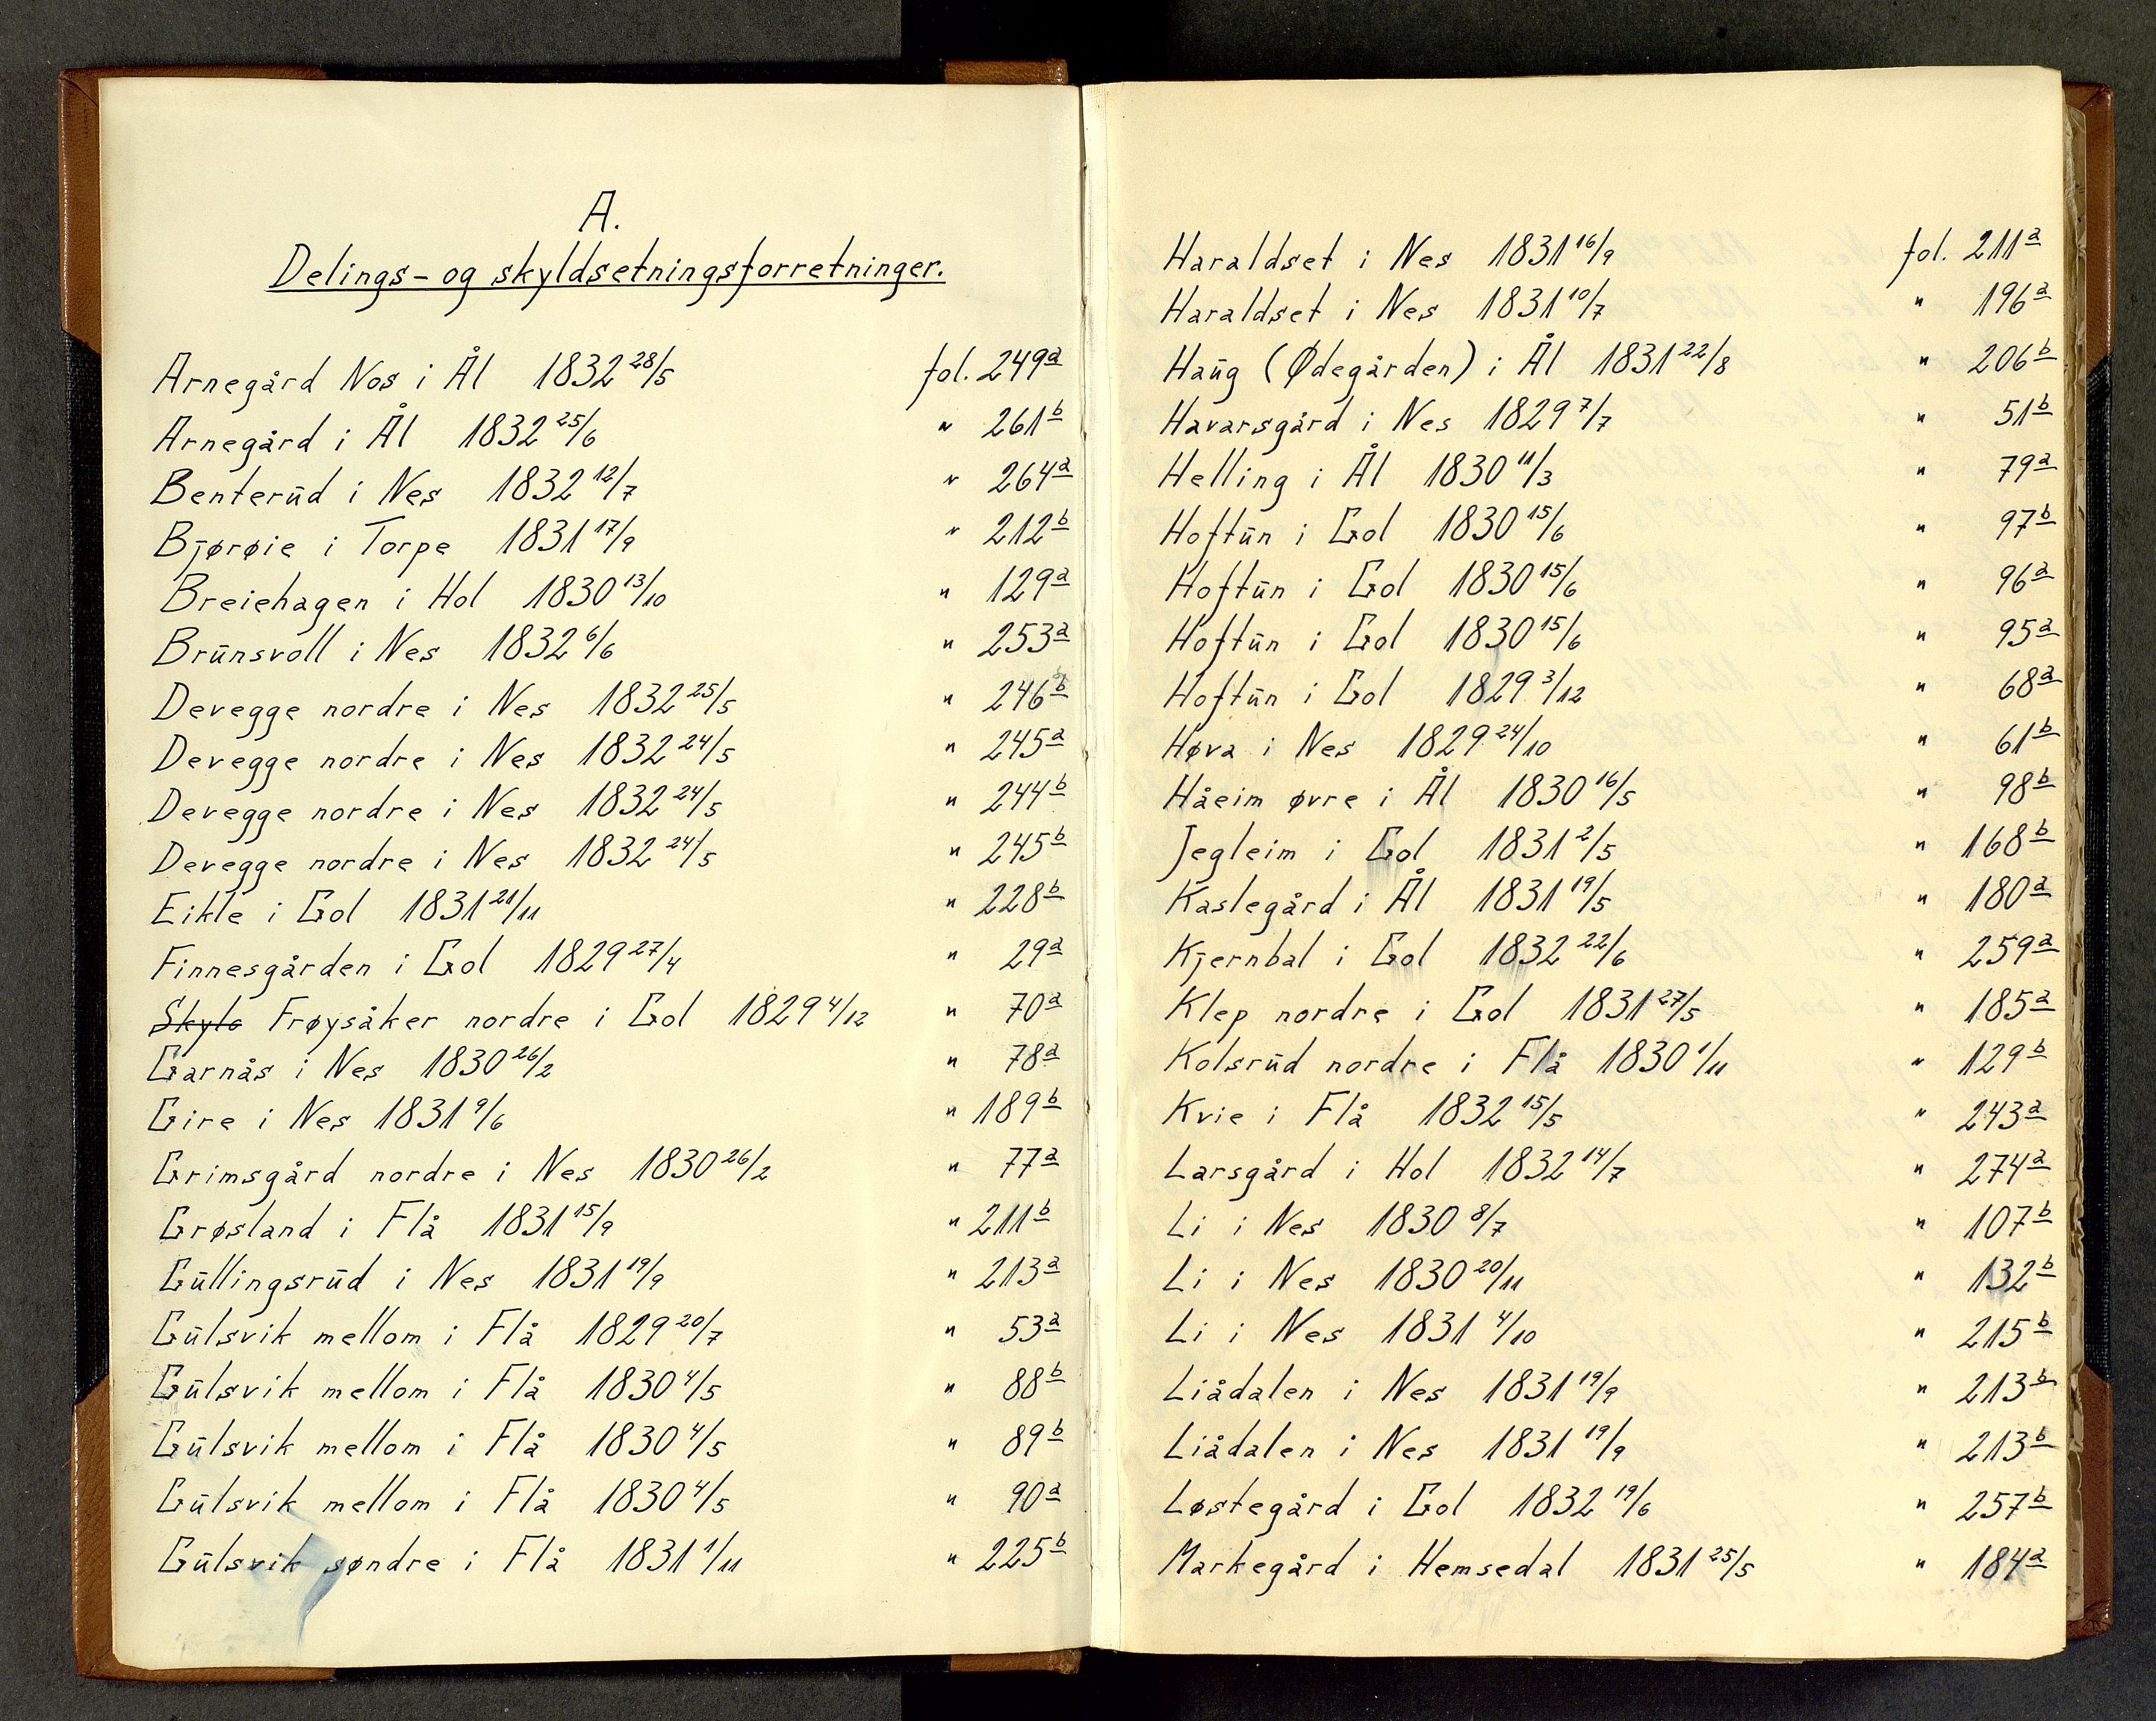 A.
Delings- og skyldsetningsforretninger.
Arnegård Nos i Ål 1832 28/5 fol. 249a
Arnegård i Ål 1832 25/6 " 261b
Benterŭd i Nes 1832 12/7 " 264a
Bjørøie i Torpe 1831 17/9 " 212b
Breiehagen i Hol 1830 13/10 " 129a
Brŭnsvoll i Nes 1832 6/6 " 253a
Devegge nordre i Nes 1832 25/5 " 246b
Devegge nordre i Nes 1832 24/5 " 245a
Devegge nordre i Nes 1832 24/5 " 244b
Devegge nordre i Nes 1832 24/5 " 245b
Eikle i Gol 1831 21/11 " 228b
Finnesgården i Gol 1829 27/4 " 29a
Frøysåker nordre i Gol 1829 4/12 " 70a
Garnås i Nes 1830 26/2 " 78a
Gire i Nes 1831 9/6 " 189b
Grimsgård nordre i Nes 1830 26/2 " 77a
Grøsland i Flå 1831 15/9 " 211b
Gŭllingsrŭd i Nes 1831 19/9 " 213a
Gŭlsvik mellom i Flå 1829 20/7 " 53a
Gŭlsvik mellom i Flå 1830 4/5 " 88b
Gŭlsvik mellom i Flå 1830 4/5 " 89b
Gŭlsvik mellom i Flå 1830 4/5 " 90a
Gŭlsvik søndre i Flå 1831 1/11 " 225b
Haraldset i Nes 1831 16/9 fol. 211a
Haraldset i Nes 1831 10/7 " 196a
Haŭg (Ødegården) i Ål 1831 22/8 " 206b
Havarsgård i Nes 1829 7/7 " 51b
Helling i Ål 1830 11/3 " 79a
Hoftŭn i Gol 1830 15/6 " 97b
Hoftŭn i Gol 1830 15/6 " 96a
Hoftŭn i Gol 1830 15/6 " 95a
Hoftŭn i Gol 1829 3/12 " 68a
Høva i Nes 1829 24/10 " 61b
Håeim øvre i Ål 1830 16/5 " 98b
Jegleim i Gol 1831 2/5 " 168b
Kaslegård i Ål 1831 19/5 " 180a
Kjernbal i Gol 1832 22/6 " 259a
Klep nordre i Gol 1831 27/5 " 185a
Kolsrŭd nordre i Flå 1830 1/11 " 129b
Kvie i Flå 1832 15/5 " 243a
Larsgård i Hol 1832 14/7 " 274a
Li i Nes 1830 8/7 " 107b
Li i Nes 1830 20/11 " 132b
Li i Nes 1831 4/10 " 215b
Liådalen i Nes 1831 19/9 " 213b
Liådalen i Nes 1831 19/9 " 213b
Løstegård i Gol 1832 19/6 " 257b
Markegård i Hemsedal 1831 25/5 " 184a